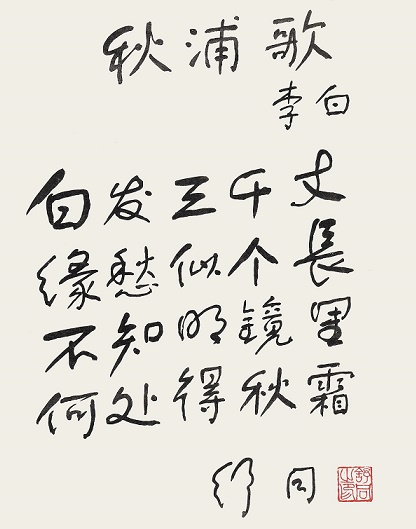 秋浦歌
李白
白发三千丈
缘愁似个長
不知明鏡里
何处得秋霜
舒同
舒同之印